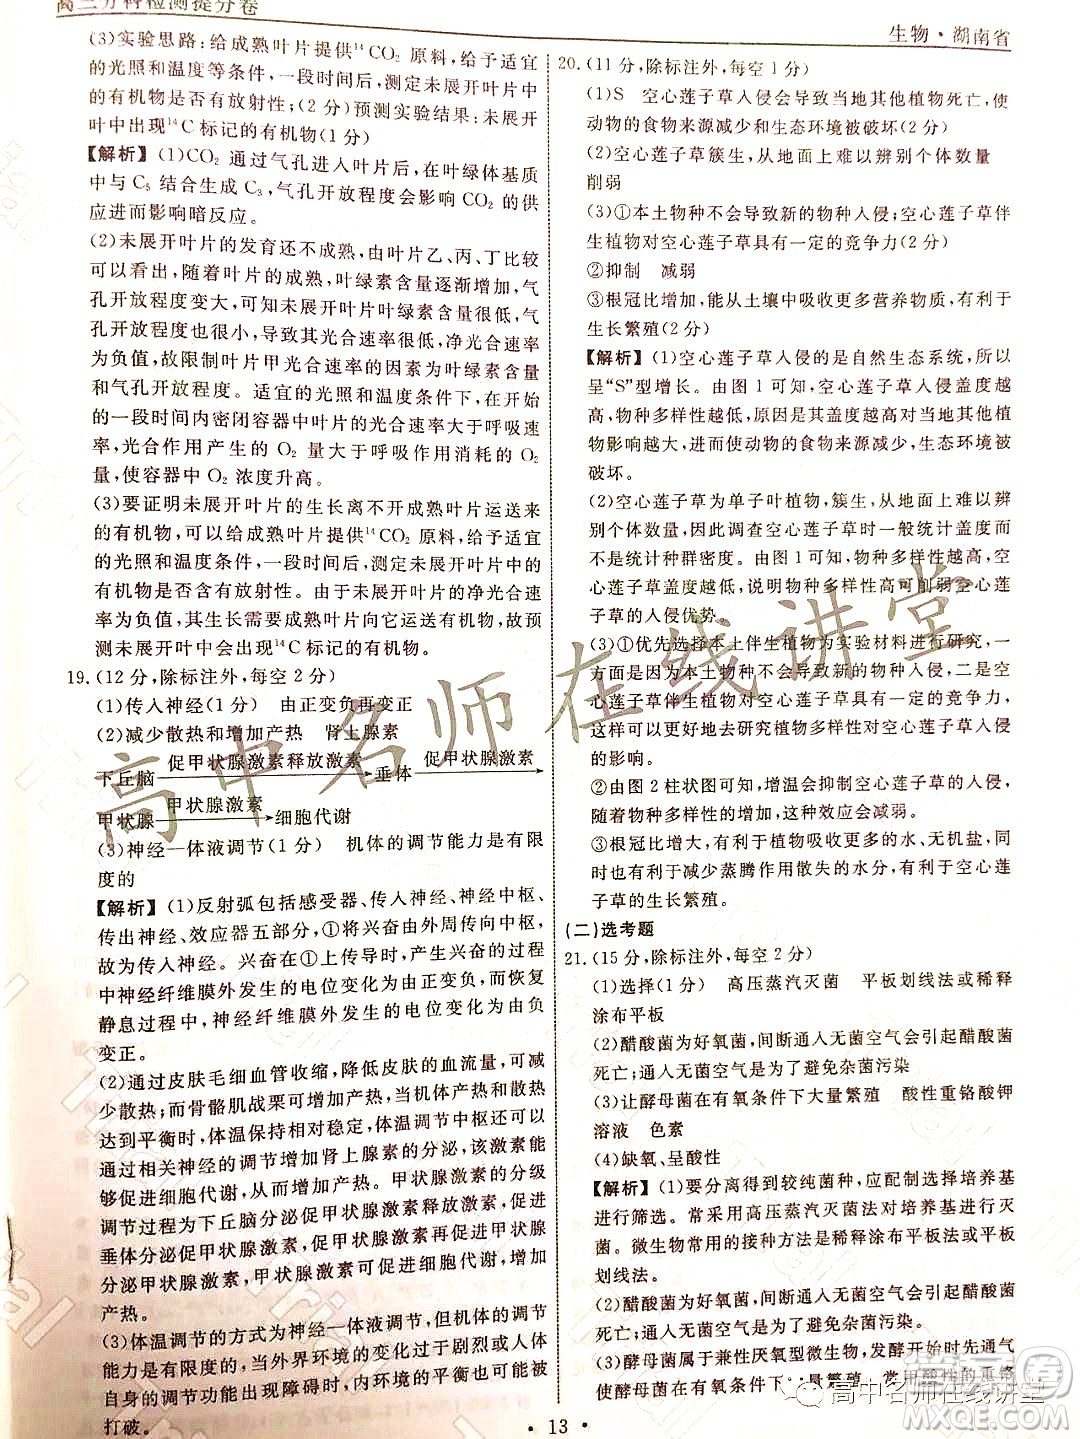 高三分科检测提分卷
生物·湖南省
(3)实验思路:给成熟叶片提供¹⁴CO₂原料,给予适宜
的光照和温度等条件,一段时间后,测定未展开叶片中
的有机物是否有放射性;(2分)预测实验结果:未展开
叶中出现¹⁴C标记的有机物(1分)
【解析】(1)CO₂通过气孔进入叶片后,在叶绿体基质
中与C₅结合生成C₃,气孔开放程度会影响CO₂的供
应进而影响暗反应。
(2)未展开叶片的发育还不成熟,由叶片乙、丙、丁比较
可以看出,随着叶片的成熟,叶绿素含量逐渐增加,气
孔开放程度变大,可知未展开叶片叶绿素含量很低,气
孔开放程度也很小,导致其光合速率很低,净光合速率
为负值,故限制叶片甲光合速率的因素为叶绿素含量
和气孔开放程度。适宜的光照和温度条件下,在开始
的一段时间内密闭容器中叶片的光合速率大于呼吸速
率,光合作用产生的O₂量大于呼吸作用消耗的O₂
量,使容器中O₂浓度升高。
(3)要证明未展开叶片的生长离不开成熟叶片运送来
的有机物,可以给成熟叶片提供¹⁴CO₂原料,给予适宜
的光照和温度条件,一段时间后,测定未展开叶片中的
有机物是否含有放射性。由于未展开叶片净光合速率
为负值,生长需要成熟叶片向它运输有机物,故推
测未展开叶中会出现¹⁴C标记的有机物。
19.(12分,除标注外,每空2分)
(1)传入神经(1分) 由正变负再变正
(2)减少散热和增加产热 肾上腺素
下丘脑 促甲状腺激素释放激素 垂体 促甲状腺激素
甲状腺 甲状腺激素 细胞代谢
(3)神经—体液调节(1分) 机体的调节能力是有限
度的
【解析】(1)反射弧包括感受器、传入神经、神经中枢、
传出神经、效应器五部分,①将兴奋由外周传向中枢,
为传入神经。兴奋在①上传导过程中,产生兴奋的过
程中神经纤维膜外发生的电位变化为由正变负,恢复
静息过程中,神经纤维膜外发生的电位变化为由负
变正。
(2)通过皮肤毛细血管收缩,降低皮肤的血流量,可减
少散热;而骨骼肌战栗可增加产热,当机体产热和散热
达到平衡时,体温保持相对稳定。体温调节中枢还可
通过相关神经的调节引起肾上腺素的分泌,该激素能
够促进细胞代谢,增加产热。甲状腺激素分泌的分级
调节过程为下丘脑分泌促甲状腺激素释放激素,促进
垂体分泌促甲状腺激素,促甲状腺激素再促进甲状腺
分泌甲状腺激素,甲状腺激素可促进细胞代谢,增加
产热。
(3)体温调节的方式为神经—体液调节,但机体的调节
能力是有限度的,当外界环境的变化过于剧烈或人体
自身的调节功能出现障碍时,内环境的平衡也可能被
打破。
20.(11分,除标注外,每空1分)
(1)S 空心莲子草入侵会导致当地其他植物死亡,使
动物的食物来源减少和生态环境被破坏(2分)
(2)空心莲子草簇生,从地面上难以辨别个体数量
削弱
(3)①本土物种不会导致新的物种入侵;空心莲子草伴
生植物对空心莲子草具有一定的竞争力(2分)
②抑制 减弱
③根冠比增加,能从土壤中吸收更多营养物质,有利于
生长繁殖(2分)
【解析】(1)空心莲子草入侵的是自然生态系统,所以
呈“S”型增长。由图1可知,空心莲子草入侵盖度越
高,物种多样性越低,原因是其盖度越高对当地其他植
物影响越大,进而使动物的食物来源减少,生态环境被
破坏。
(2)空心莲子草为单子叶植物,簇生,从地面上难以辨
别个体数量,因此调查空心莲子草时一般统计盖度而
不是统计种群密度。由图1可知,物种多样性越高,空
心莲子草盖度越低,说明物种多样性高可削弱空心莲
子草的入侵优势。
(3)①优先选择本土伴生植物为实验材料进行研究,一
是因为本土物种不会导致新的物种入侵,二是空心莲
子草的伴生植物对空心莲子草具有一定的竞争力,
这样可以更好地去研究植物多样性对空心莲子草入侵
的影响。
②由图2柱状图可知,增温会抑制空心莲子草的入侵,
随着植物多样性的增加,这种效应会减弱。
③根冠比增大,有利于吸收更多的水、无机盐,同时也
有利于减少蒸腾作用散失的水分,有利于空心莲子
草的生长繁殖。
(二)选考题
21.(15分,除标注外,每空2分)
(1)选择(1分) 高压蒸汽灭菌 平板划线法或稀释
涂布平板
(2)醋酸菌为好氧菌,间断通入无菌空气会引起醋酸菌
死亡;通入无菌空气是为了避免杂菌污染
(3)让酵母菌在有氧条件下大量繁殖 酸性重铬酸钾
溶液 色素
(4)缺氧、呈酸性
【解析】(1)要分离得到较纯菌种,应配制选择培养基
进行筛选。常采用高压蒸汽灭菌法对培养基进行灭
菌。微生物常用的接种方法是稀释涂布平板法和平板
划线法。
(2)醋酸菌为好氧菌,间断通入无菌空气会引起醋酸菌
死亡;通入无菌空气是为了避免杂菌污染。
(3)酵母菌属于兼性厌氧型微生物,发酵开始时先通气
使酵母菌在有氧条件下大量繁殖。常用酸性的重铬
· 13 ·
高中名师在线讲堂
高中名师在线讲堂
答案圈
MXQE.COM